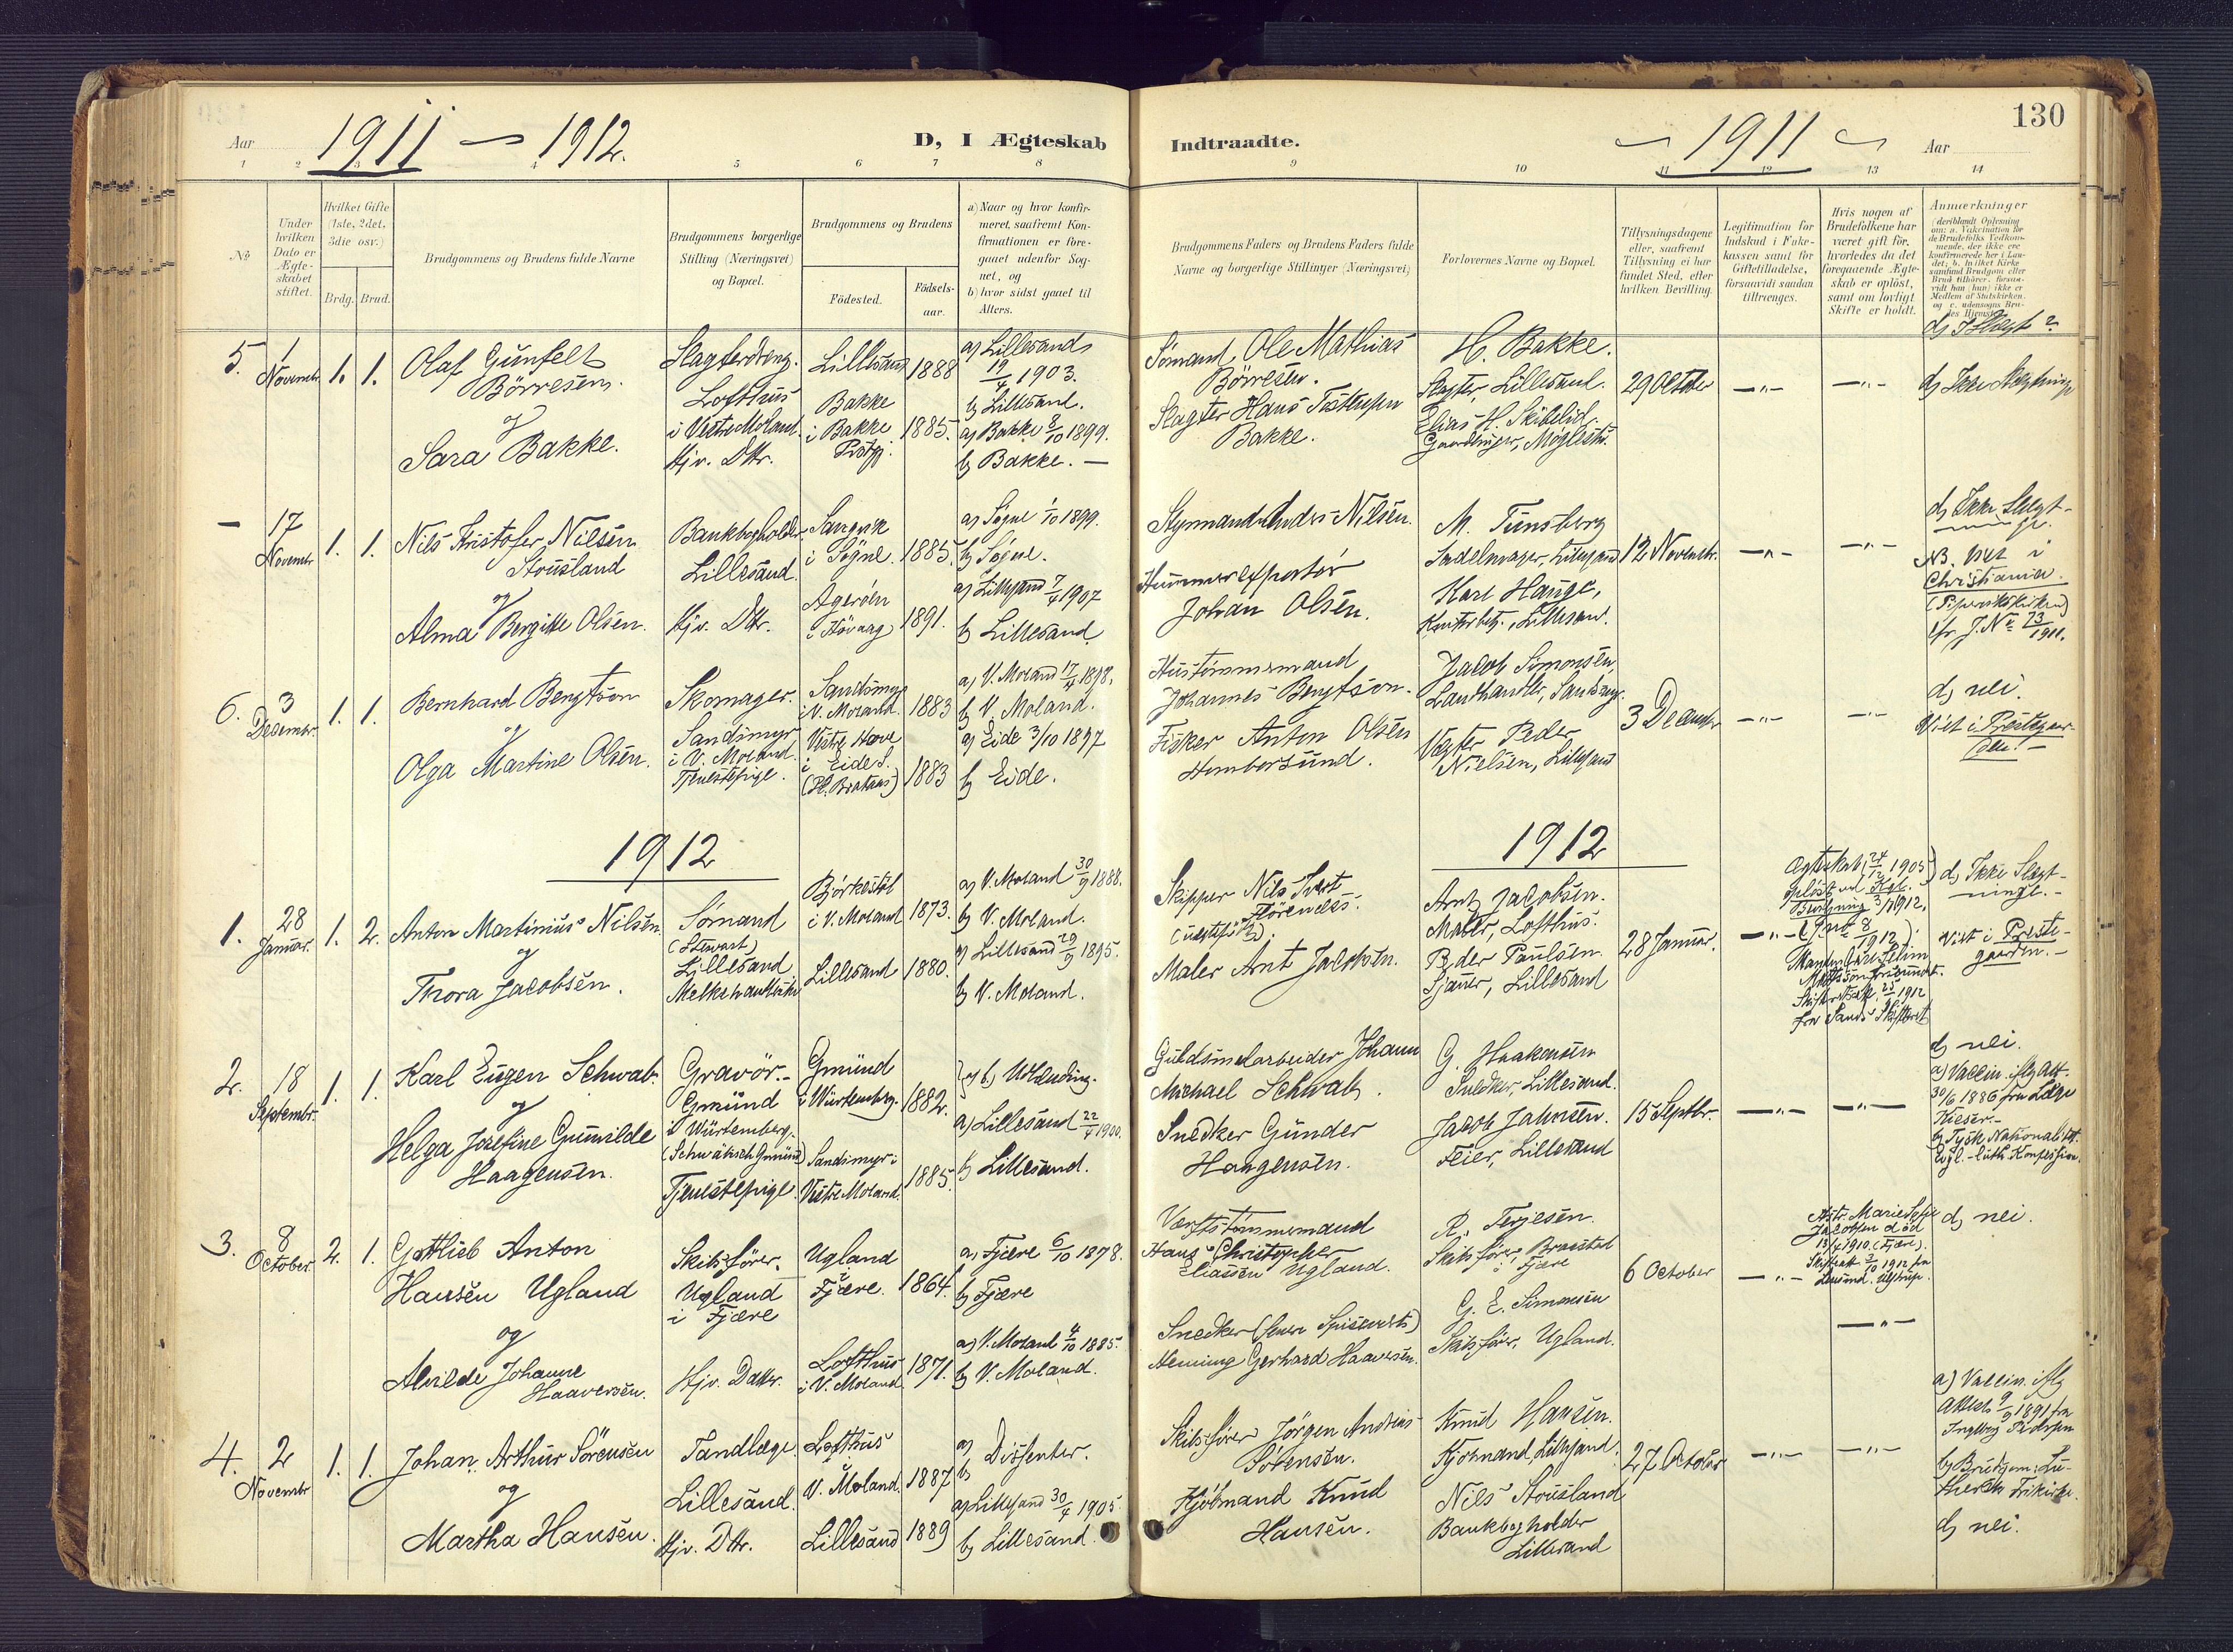 Aar 1911 — 1912.
D, I Ægteskab
Indtraadte.
1911
Aar
130
1 2 3 4 5 6 7 8 9 10 11 12 13 14
№
Under
hvilken
Dato er
Ægte-
skabet
stiftet.
Hvilket Gifte
(1ste, 2det,
3die osv.)
Brdg. Brud.
Brudgommens og Brudens fulde Navne
Brudgommens borgerlige
Stilling (Næringsvei)
og Bopæl.
Brudgommens og Brudens
Fødested.
Fødsels-
aar.
a) Naar og hvor konfir-
meret, saafremt Kon-
firmationen er fore-
gaaet udenfor Sog-
net, og
b) hvor sidst gaaet til
Alters.
Brudgommens Faders og Brudens Faders fulde
Navne og borgerlige Stillinger (Næringsvei)
Forlovernes Navne og Bopæl.
Tillysningsdagene
eller, saafremt
Tillysning ei har
fundet Sted, efter
hvilken Bevilling.
Legitimation for
Indskud i Enke-
kassen samt for
Giftetilladelse,
forsaavidt saadan
tiltrænges.
Hvis nogen af
Brudefolkene har
været gift før,
hvorledes da det
foregaaende Ægte-
skab er opløst,
samt om lovligt
Skifte er holdt.
Anmærkninger
5. 1 Novembr. 1. 1.
Olaf Gunfelt
Börresen.
og
Sara Bakke.
Slagterdreng.
Lofthus
i Vestre Moland.
Hjv. Dttr.
Lillesand 1888
Bakke
i Bakke 1885.
a) Lillesand
19/4 1903.
b) Lillesand.
a) Bakke 8/10 1899.
b) Bakke. —
Sömand Ole Mathias
Börresen.
Slagter Hans
Bakke.
H. Bakke.
Slagter, Lillesand.
Elias H.
29 Oktober
—„—
—„—
— 17 Novembr 1. 1.
Nils Kristofer Nilsen
Stousland
og
Alma Bergitte Olsen.
Bankbogholder
Lillesand.
Hjv. Dttr.
i Søgne. 1885.
Agerøen
i Høvaag 1891.
a) Søgne 1/10 1899.
b) Søgne.
a) Lillesand 7/4 1907
b) Lillesand
Styrmand Anders Nilsen.
Hummerexportør
Johan Olsen.
M. Tunsberg
Sadelmager, Lillesand
Karl Hauge,
Lillesand.
12 Novembr.
—„—
—„—
d) Ikke Slægt-
NB. Viet i
Christiania.
1911.
6. 3 Desembr. 1. 1.
Bernhard Bengtson
og
Olga Martine Olsen.
Skomager.
Sandsmyr
i V. Moland.
Tjenestepige.
Sandsmyr
i V. Moland. 1883
i Eide S.
1883
a) V. Moland 17/4 1898.
b) V. Moland.
a) Eide 3/10 1897
b) Eide.
Hustømmermand
Johannes Bengtson.
Fisker Anton Olsen
Hombersund.
Jacob Simonsen,
Landhandler, Sandsmyr.
Vægter Peder
Nielsen, Lillesand
3 December
—„—
—„—
d) nei.
Viet i Prestegaar-
den. —
1912
1912
1. 28 Januar. 1. 2.
Anton Martinius Nilsen.
og
Thora Jacobsen.
Sømand
(Stewart)
Lillesand
Björkestöl
i V. Moland 1873.
Lillesand 1880.
a) V. Moland 30/9 1888.
b) V. Moland.
a) Lillesand 29/9 1895.
b) V. Moland.
Skipper Nils
Maler Arnt Jacobsen.
Arnt Jacobsen.
Maler, Lofthus.
Peder Paulsen
Lillesand
28 Januar.
—„—
Ægteskab 24/12 1905
opløst ved Kgl.
Bevilgning 3/1 1912,
d) Ikke Slægt-
ninge. —
Viet i Preste-
gaarden. —
2. 18 Septembr. 1. 1.
Karl Eugen Schwab.
og
Helga Josefine Gunvilde
Haagensen.
Gravör. —
Gmünd
i Würtemberg.
(Schwäbisch Gmünd)
Tjenestepige.
Gmünd
i Würtemberg. 1882.
Sandsmyr i
Vestre Moland. 1885.
a) b) Udlænding.
a) Lillesand 22/4 1900.
b) Lillesand.
Guldsmedarbeider Johann
Michael Schwab.
Snedker Gunder
Haagensen.
G. Haakonsen
Snedker, Lillesand.
Jacob Jahnsen.
Feier, Lillesand
15 Septbr.
—„—
—„—
d) nei.
a) Vaccin. iflg. Att.
30/6 1886 fra Læge
Kieser. —
b) Tysk Nationalitet.
Evgl.-luth. Konfession.
3. 8 October. 2. 1.
Gottlieb Anton
Hansen Ugland
og
Alvilde Johanne
Haaversen.
Skibsfører.
Ugland
i Fjære
Hjv. Datter.
Ugland
i
Fjære. 1864.
Lofthus
i V. Moland 1871.
a) Fjære 6/10 1878.
b) Fjære
a) V. Moland 4/10 1885.
b) V. Moland.
Værftstömmermand
Hans Christopher
Eliassen Ugland.
Snedker
Gerhard Haaversen.
R. Terjesen.
Skibsfører,
i Fjære
G. E. Simonsen
Skibsfører, Ugland.
6 October
—„—
Jacobsen død
13/4 1910. (Fjære).
—„—
d) nei.
4. 2 Novembr 1. 1.
Johan Arthur Sörensen
og
Martha Hansen.
Tandlæge
Lillesand.
Hjv. Dttr.
Lofthus
V. Moland. 1887
Lillesand 1889
a)
b) Dissenter.
a) Lillesand 30/4 1905.
b) Lillesand.
Skibsfører Jørgen Andreas
Sørensen.
Kjöbmand Knud
Hansen.
Knud Hansen.
Kjöbmand, Lillesand.
Nils Stousland
Bankbogholder
Lillesand
27 October
—„—
—„—
a) Vaccin. iflg
Attest 9/9 1891 fra
Ingbrg Pedersen
b) Brudgom: Lu-
thersk Frikirke.
d) nei.